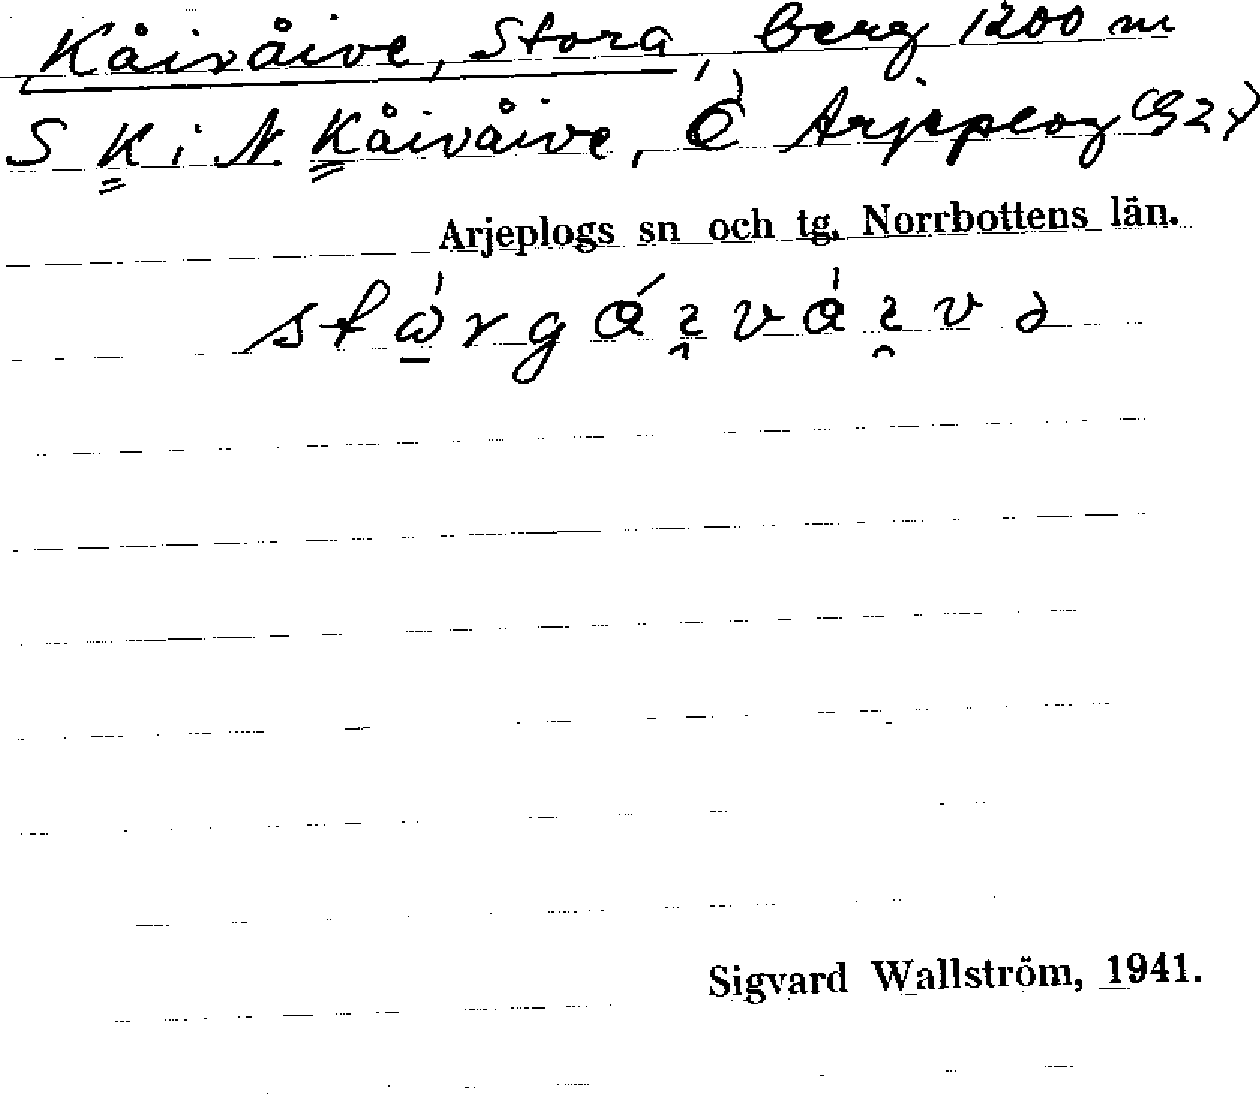 Kåivåive, Stora, berg 1200 m
S K i N Kåivåive, Arjeplog
Arjeplogs sn och tg, Norrbottens län.
Sigvard Wallström, 1941.